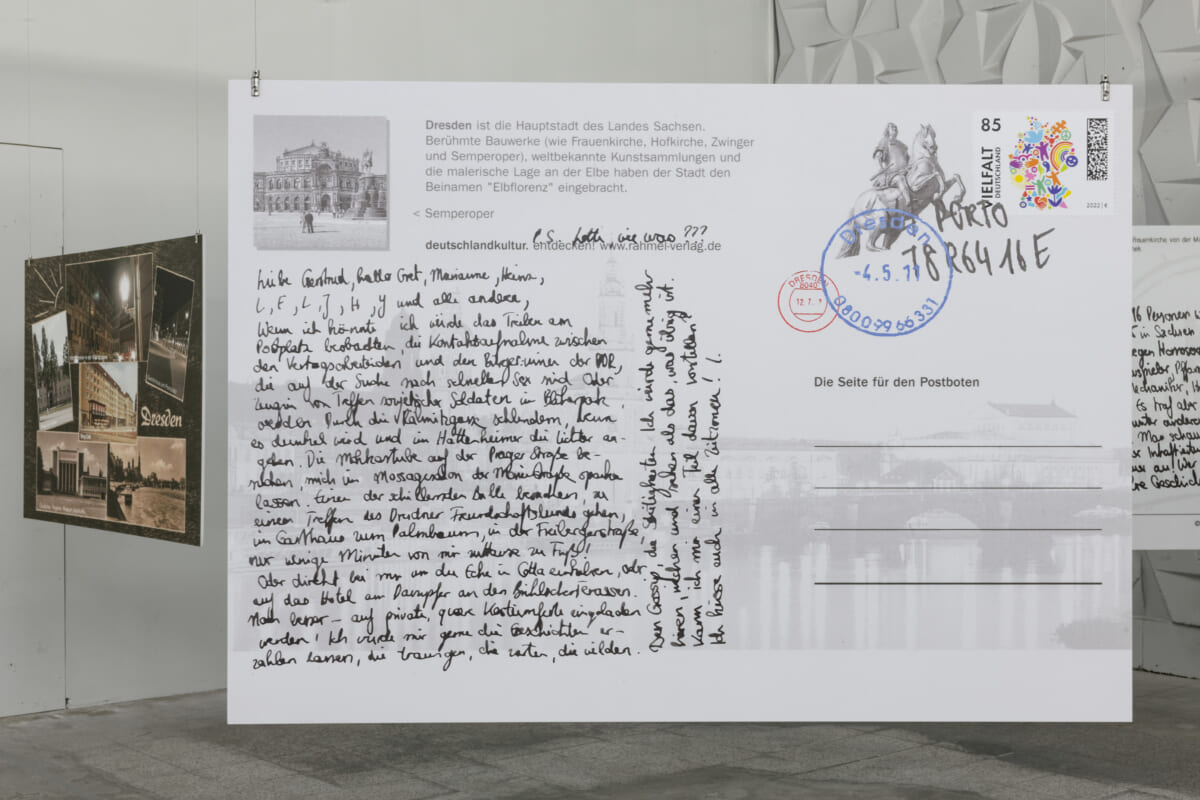 Dresden ist die Hauptstadt des Landes Sachsen.
Berühmte Bauwerke (wie Frauenkirche, Hofkirche, Zwinger
und Semperoper), weltbekannte Kunstsammlungen und
die malerische Lage an der Elbe haben der Stadt den
Beinamen "Elbflorenz" eingebracht.
< Semperoper
P.S. Lotti wie war ???
deutschlandkultur. entdecken! www.rahmel-verlag.de
Liebe Gertrud, hallo Gret, Marianne, Heinz,
L, F, L, J, H, Y und alle andere,
Wenn ich könnte ich würde das Treiben am
Postplatz beobachten, die Kontaktaufnahme zwischen
den Vertragsarbeitenden und den Bürger:innen der DDR,
die auf der Suche nach schnellem Sex sind. Oder
Zeugin von Treffen sowjetischer Soldaten im Blüherpark
werden. Durch die schlendern, wenn
es dunkel wird und im Hattenheimer die Lichter an-
gehen. Die Mokkastube auf der Prager Straße be-
suchen, mich im Massagesalon der Straße
lassen. Einen der schillernden Bälle besuchen, zu
einem Treffen des Dresdner Freundschaftsbunds gehen,
im Gasthaus zum Palmbaum, in der Freibergerstraße,
nur wenige Minuten von mir zuhause zu Fuß!
Oder direkt bei mir an der Ecke in Cotta einkehren, oder
auf das Hotel am Dampfer an den Brühlschen Terrassen.
Noch besser – auf private, queere Kostümfeste eingeladen
werden! Ich würde mir gerne die Geschichten er-
zählen lassen, die traurigen, die zarten, die wilden.
Den Gossip, die Streitigkeiten. Ich würde gerne mehr
hören, riechen und sehen als das, was übrig ist.
Kann ich mir einen Teil davon vorstellen?
Ich auch in alle L.
85
VIELFALT
DEUTSCHLAND
2022 | €
PORTO
78R6416E
Dresden
-4.5.11
0800 99 66 331
DRESDEN
8040
12.7.
Die Seite für den Postboten
Dresden
Frauenkirche von der
16 Personen
in Sachsen